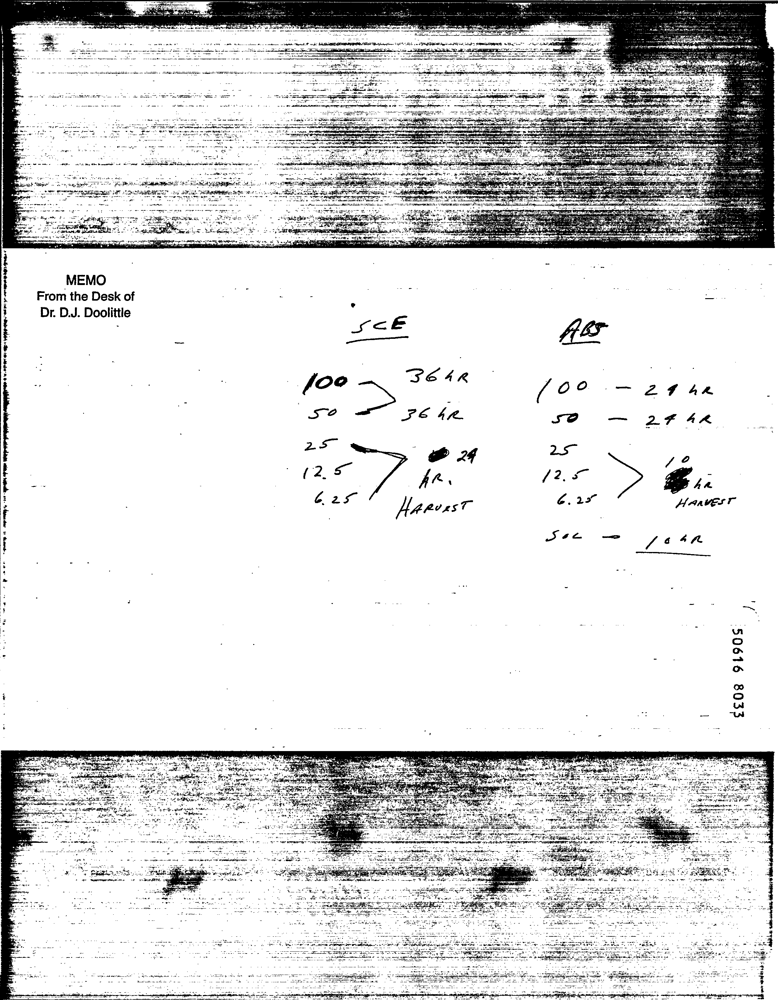 MEMO
From the Desk of
Dr. D.J. Doolittle
SCE
100 - 36 hR
50 - 36 hR
25
12.5
6.25
24
hR.
HARVEST
ABS
100 - 24 hR
50 - 24 hR
25
12.5
6.25
10
hR
HARVEST
SOL - 10 hR
50616 8033